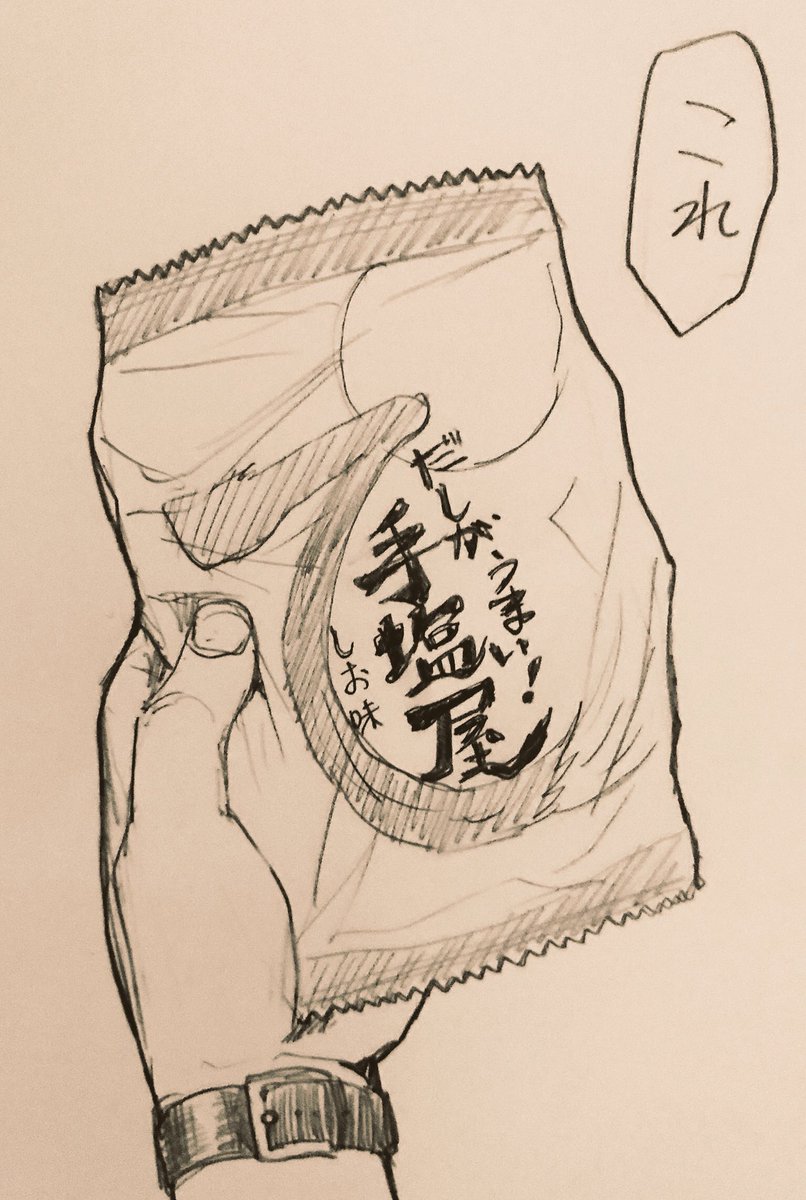 これ
だしが、うまい!
手塩屋
しお味